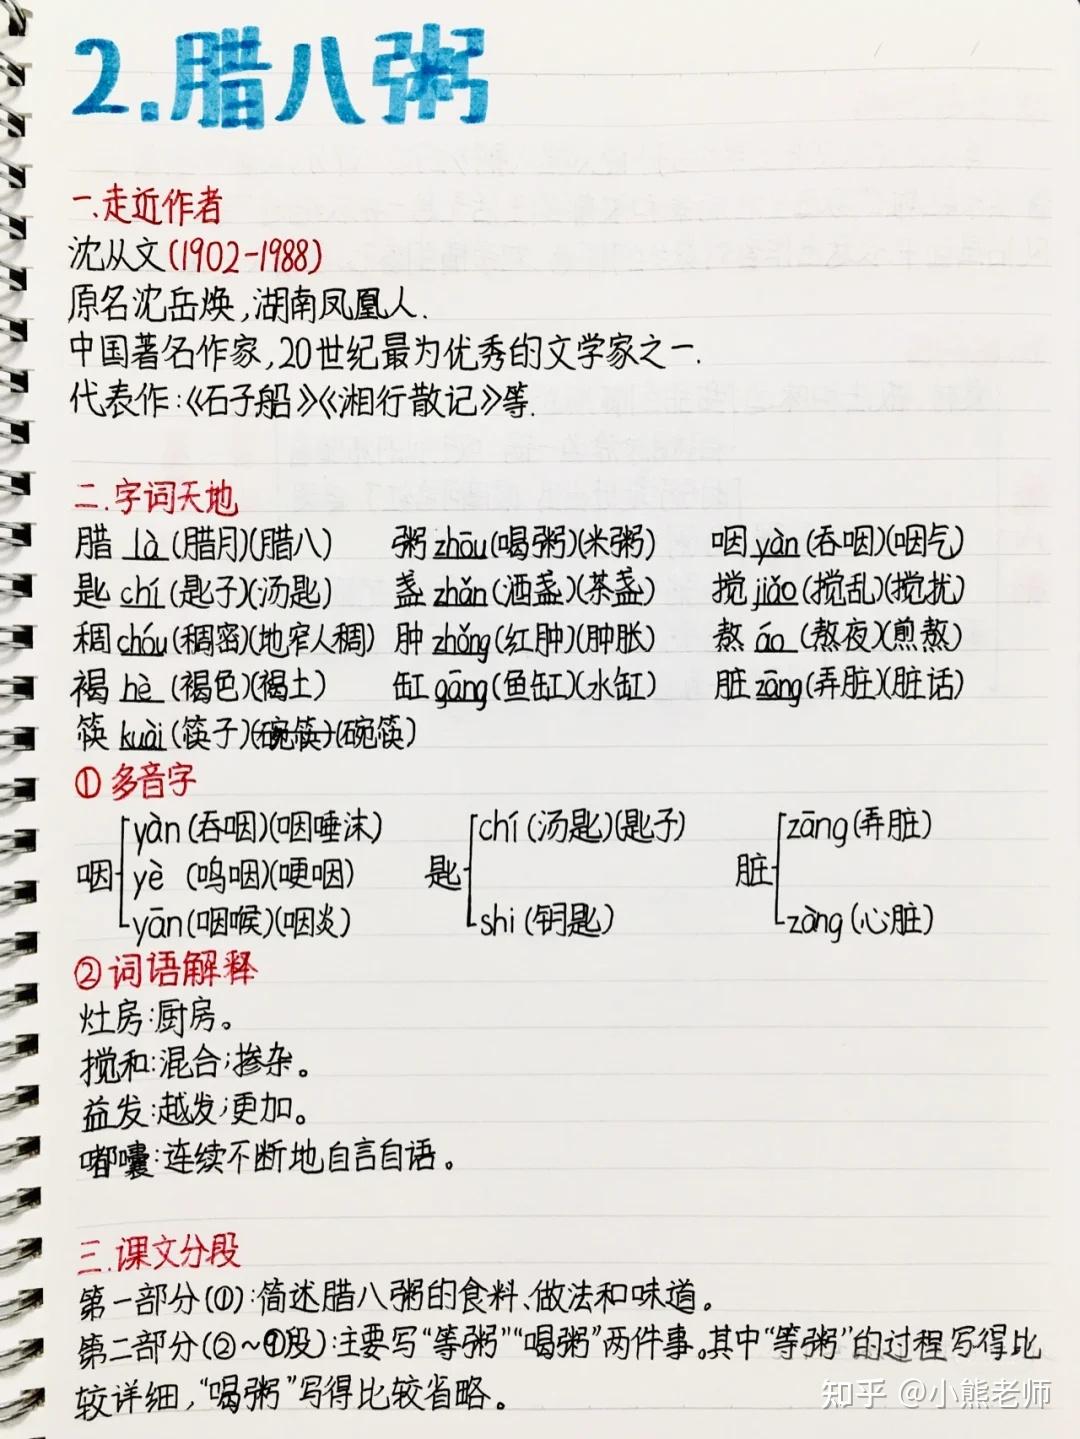 2.腊八粥
一.走近作者
沈从文(1902-1988)
原名沈岳焕,湖南凤凰人.
中国著名作家,20世纪最为优秀的文学家之一.
代表作:《石子船》《湘行散记》等.
二.字词天地
腊 là(腊月)(腊八) 粥 zhōu(喝粥)(米粥) 咽 yàn(吞咽)(咽气)
匙 chí(匙子)(汤匙) 盏 zhǎn(酒盏)(茶盏) 搅 jiǎo(搅乱)(搅扰)
稠 chóu(稠密)(地窄人稠) 肿 zhǒng(红肿)(肿胀) 熬 áo(熬夜)(煎熬)
褐 hè(褐色)(褐土) 缸 gāng(鱼缸)(水缸) 脏 zāng(弄脏)(脏话)
筷 kuài(筷子)(碗筷)(碗筷)
①多音字
yàn(吞咽)(咽唾沫) chí(汤匙)(匙子) zāng(弄脏)
咽 yè(呜咽)(哽咽) 匙 脏
yān(咽喉)(咽炎) shi(钥匙) zàng(心脏)
②词语解释
灶房:厨房。
搅和:混合;掺杂。
益发:越发;更加。
嘟囔:连续不断地自言自语。
三.课文分段
第一部分(①):简述腊八粥的食料、做法和味道。
第二部分(②~⑲段):主要写“等粥”“喝粥”两件事。其中“等粥”的过程写得比
较详细,“喝粥”写得比较省略。
知乎 @小熊老师